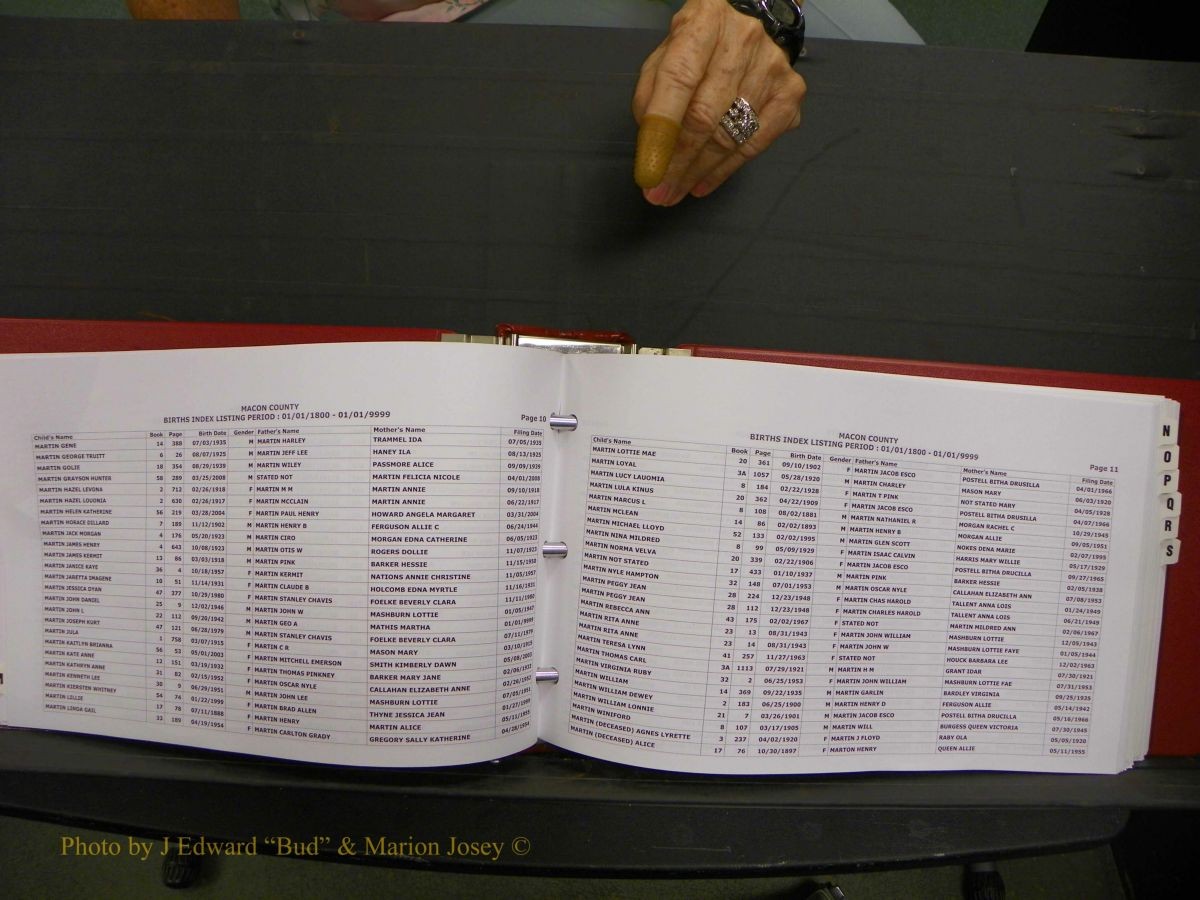 MACON COUNTY
BIRTHS INDEX LISTING PERIOD : 01/01/1800 - 01/01/9999
Page 10
Child's Name Book Page Birth Date Gender Father's Name Mother's Name Filing Date
MARTIN GENE 14 388 07/03/1935 M MARTIN HARLEY TRAMMEL IDA 07/05/1935
MARTIN GEORGE TRUITT 6 26 08/07/1925 M MARTIN JEFF LEE HANEY ILA 08/13/1925
MARTIN GOLIE 18 354 08/29/1939 M MARTIN WILEY PASSMORE ALICE 09/09/1939
MARTIN GRAYSON HUNTER 58 289 03/25/2008 M STATED NOT MARTIN FELICIA NICOLE 04/01/2008
MARTIN HAZEL LEVONA 2 712 02/26/1918 F MARTIN M M MARTIN ANNIE 09/10/1918
MARTIN HAZEL LOUONIA 2 630 02/26/1917 F MARTIN MCCLAIN MARTIN ANNIE 06/22/1917
MARTIN HELEN KATHERINE 56 219 03/28/2004 F MARTIN PAUL HENRY HOWARD ANGELA MARGARET 03/31/2004
MARTIN HORACE DILLARD 7 189 11/12/1902 M MARTIN HENRY B FERGUSON ALLIE C 06/24/1944
MARTIN JACK MORGAN 4 176 05/20/1923 M MARTIN CIRO MORGAN EDNA CATHERINE 06/05/1923
MARTIN JAMES HENRY 4 643 10/08/1923 M MARTIN OTIS W ROGERS DOLLIE 11/07/1923
MARTIN JAMES KERMIT 13 86 03/03/1918 M MARTIN PINK BARKER HESSIE
MARTIN JANICE KAYE 36 4 10/18/1957 F MARTIN KERMIT NATIONS ANNIE CHRISTINE 11/05/1957
MARTIN JARETTA IMAGENE 10 51 11/14/1931 F MARTIN CLAUDE B HOLCOMB EDNA MYRTLE 11/16/1931
MARTIN JESSICA DYAN 47 377 10/29/1980 F MARTIN STANLEY CHAVIS FOELKE BEVERLY CLARA 11/11/1980
MARTIN JOHN DANIEL 25 9 12/02/1946 M MARTIN JOHN W MASHBURN LOTTIE 01/05/1947
MARTIN JOHN L 22 112 09/20/1942 M MARTIN GEO A MATHIS MARTHA 01/01/9999
MARTIN JOSEPH KURT 47 121 06/28/1979 M MARTIN STANLEY CHAVIS FOELKE BEVERLY CLARA 07/11/1979
MARTIN JULA 1 758 03/07/1915 F MARTIN C R MASON MARY 03/10/1915
MARTIN KAITLYN BRIANNA 56 53 05/01/2003 F MARTIN MITCHELL EMERSON SMITH KIMBERLY DAWN 05/08/2003
MARTIN KATE ANNE 12 151 03/19/1932 F MARTIN THOMAS PINKNEY BARKER MARY JANE
MARTIN KATHRYN ANNE 31 82 02/15/1952 F MARTIN OSCAR NYLE CALLAHAN ELIZABETH ANNE 02/26/1952
MARTIN KENNETH LEE 30 9 06/29/1951 M MARTIN JOHN LEE MASHBURN LOTTIE 07/05/1951
MARTIN KIERSTEN WHITNEY 54 74 01/22/1999 F MARTIN BRAD ALLEN THYNE JESSICA JEAN 01/27/1999
MARTIN LILLIE 17 78 07/11/1888 F MARTIN HENRY MARTIN ALICE 05/11/1955
MARTIN LINDA GAIL 33 189 04/19/1954 F MARTIN CARLTON GRADY GREGORY SALLY KATHERINE 04/28/1954
MACON COUNTY
BIRTHS INDEX LISTING PERIOD : 01/01/1800 - 01/01/9999
Page 11
Child's Name Book Page Birth Date Gender Father's Name Mother's Name Filing Date
MARTIN LOTTIE MAE 20 361 09/10/1902 F MARTIN JACOB ESCO POSTELL BITHA DRUSILLA 04/01/1966
MARTIN LOYAL 3A 1057 05/28/1920 M MARTIN CHARLEY MASON MARY 06/03/1920
MARTIN LUCY LAUOMIA 8 184 02/22/1928 F MARTIN T PINK NOT STATED MARY 04/05/1928
MARTIN LULA KINUS 20 362 04/22/1909 F MARTIN JACOB ESCO POSTELL BITHA DRUSILLA 04/07/1966
MARTIN MARCUS L 8 108 08/02/1881 M MARTIN NATHANIEL R MORGAN RACHEL C 10/29/1945
MARTIN MCLEAN 14 86 02/02/1893 M MARTIN HENRY B MORGAN ALLIE 09/05/1951
MARTIN MICHAEL LLOYD 52 133 02/02/1995 M MARTIN GLEN SCOTT NOKES DENA MARIE 02/07/1995
MARTIN NINA MILDRED 8 99 05/09/1929 F MARTIN ISAAC CALVIN HARRIS MARY WILLIE 05/17/1929
MARTIN NORMA VELVA 20 339 02/22/1906 F MARTIN JACOB ESCO POSTELL BITHA DRUCILLA 09/27/1965
MARTIN NOT STATED 17 433 01/10/1937 M MARTIN PINK BARKER HESSIE 02/05/1938
MARTIN NYLE HAMPTON 32 148 07/01/1953 M MARTIN OSCAR NYLE CALLAHAN ELIZABETH ANN 07/08/1953
MARTIN PEGGY JEAN 28 224 12/23/1948 F MARTIN CHAS HAROLD TALLENT ANNA LOIS 01/24/1949
MARTIN PEGGY JEAN 28 112 12/23/1948 F MARTIN CHARLES HAROLD TALLENT ANNA LOIS 06/21/1949
MARTIN REBECCA ANN 43 175 02/02/1967 F STATED NOT MARTIN MILDRED ANN 02/06/1967
MARTIN RITA ANNE 23 13 08/31/1943 F MARTIN JOHN WILLIAM MASHBURN LOTTIE 12/05/1943
MARTIN RITA ANNE 23 14 08/31/1943 F MASHBURN LOTTIE FAYE 01/05/1944
MARTIN TERESA LYNN 41 257 11/27/1963 F STATED NOT HOUCK BARBARA LEE 12/02/1963
MARTIN THOMAS CARL 3A 1113 07/29/1921 M MARTIN H M GRANT IDAR 07/30/1921
MARTIN VIRGINIA RUBY 32 2 06/25/1953 F MARTIN JOHN WILLIAM MASHBURN LOTTIE FAE 07/31/1953
MARTIN WILLIAM 14 369 09/22/1935 M MARTIN GARLIN BARDLEY VIRGINIA 09/25/1935
MARTIN WILLIAM DEWEY 2 183 06/25/1900 M MARTIN HENRY D FERGUSON ALLIE
MARTIN WILLIAM LONNIE 21 7 03/26/1901 M MARTIN JACOB ESCO POSTELL BITHA DRUCILLA 05/16/1966
MARTIN WINIFORD 8 107 03/17/1905 M MARTIN WILL BURGESS QUEEN VICTORIA 07/30/1945
MARTIN (DECEASED) AGNES LYRETTE 3 237 04/02/1920 F MARTIN J FLOYD RABY OLA 05/05/1920
MARTIN (DECEASED) ALICE 17 76 10/30/1897 F MARTON HENRY QUEEN ALLIE 05/11/1955
N
O
P
Q
R
S
M
Photo by J Edward “Bud” & Marion Josey ©